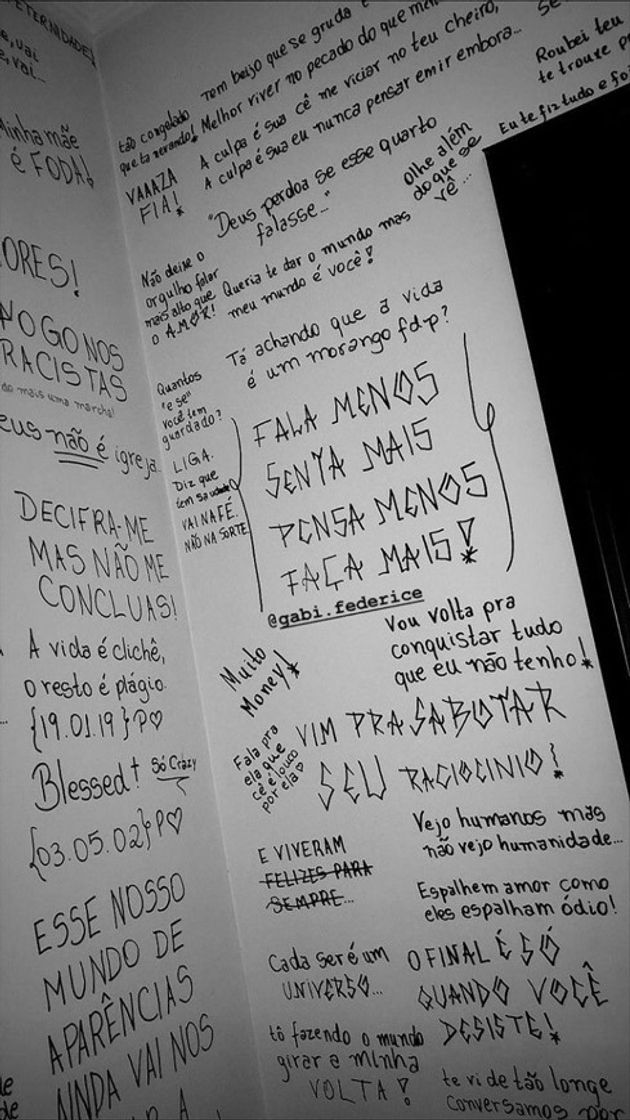 ETERNIDADE
vai
vai...
Minha mãe
é FODA!
ORES!
FOGO NOS
RACISTAS
do mais uma marcha!
eus não é igreja
DECIFRA-ME
MAS NÃO ME
CONCLUAS!
A vida é clichê,
o resto é plágio.
{19.01.19} P♡
Blessed†
Só Crazy
{03.05.02} P♡
ESSE NOSSO
MUNDO DE
APARÊNCIAS
AINDA VAI NOS
Tem beijo que se gruda
Melhor viver no pecado do que
A culpa é sua cê me viciar no teu cheiro,
A culpa é sua eu nunca pensar em ir embora...
tão congelado
que ta nevando!
VAAAZA
FIA!
"Deus perdoa se esse quarto
falasse..."
Olhe além
do que se
vê...
Roubei teu
te trouxe
Eu te fiz tudo e foi
Não deixe o
orgulho falar
mais alto que
o AMOR!
Queria te dar o mundo mas
meu mundo é você!
Tá achando que a vida
é um morango fdp?
Quantos
"e se"
você tem
guardado?
LIGA.
Diz que
tem saudade
VAI NA FÉ.
NÃO NA SORTE
FALA MENOS
SENTA MAIS
PENSA MENOS
FAÇA MAIS!
@gabi.federice
Muito
Money!
Vou volta pra
conquistar tudo
que eu não tenho!
Fala pra
ela que
cê é louco
por ela♡
VIM PRA SABOTAR
SEU RACIOCINIO!
E VIVERAM
FELIZES PARA
SEMPRE...
Vejo humanos mas
não vejo humanidade...
Espalhem amor como
eles espalham ódio!
Cada ser é um
UNIVERSO...
O FINAL É SÓ
QUANDO VOCÊ
DESISTE!
tô fazendo o mundo
girar a minha
VOLTA!
te vi de tão longe
conversamos por